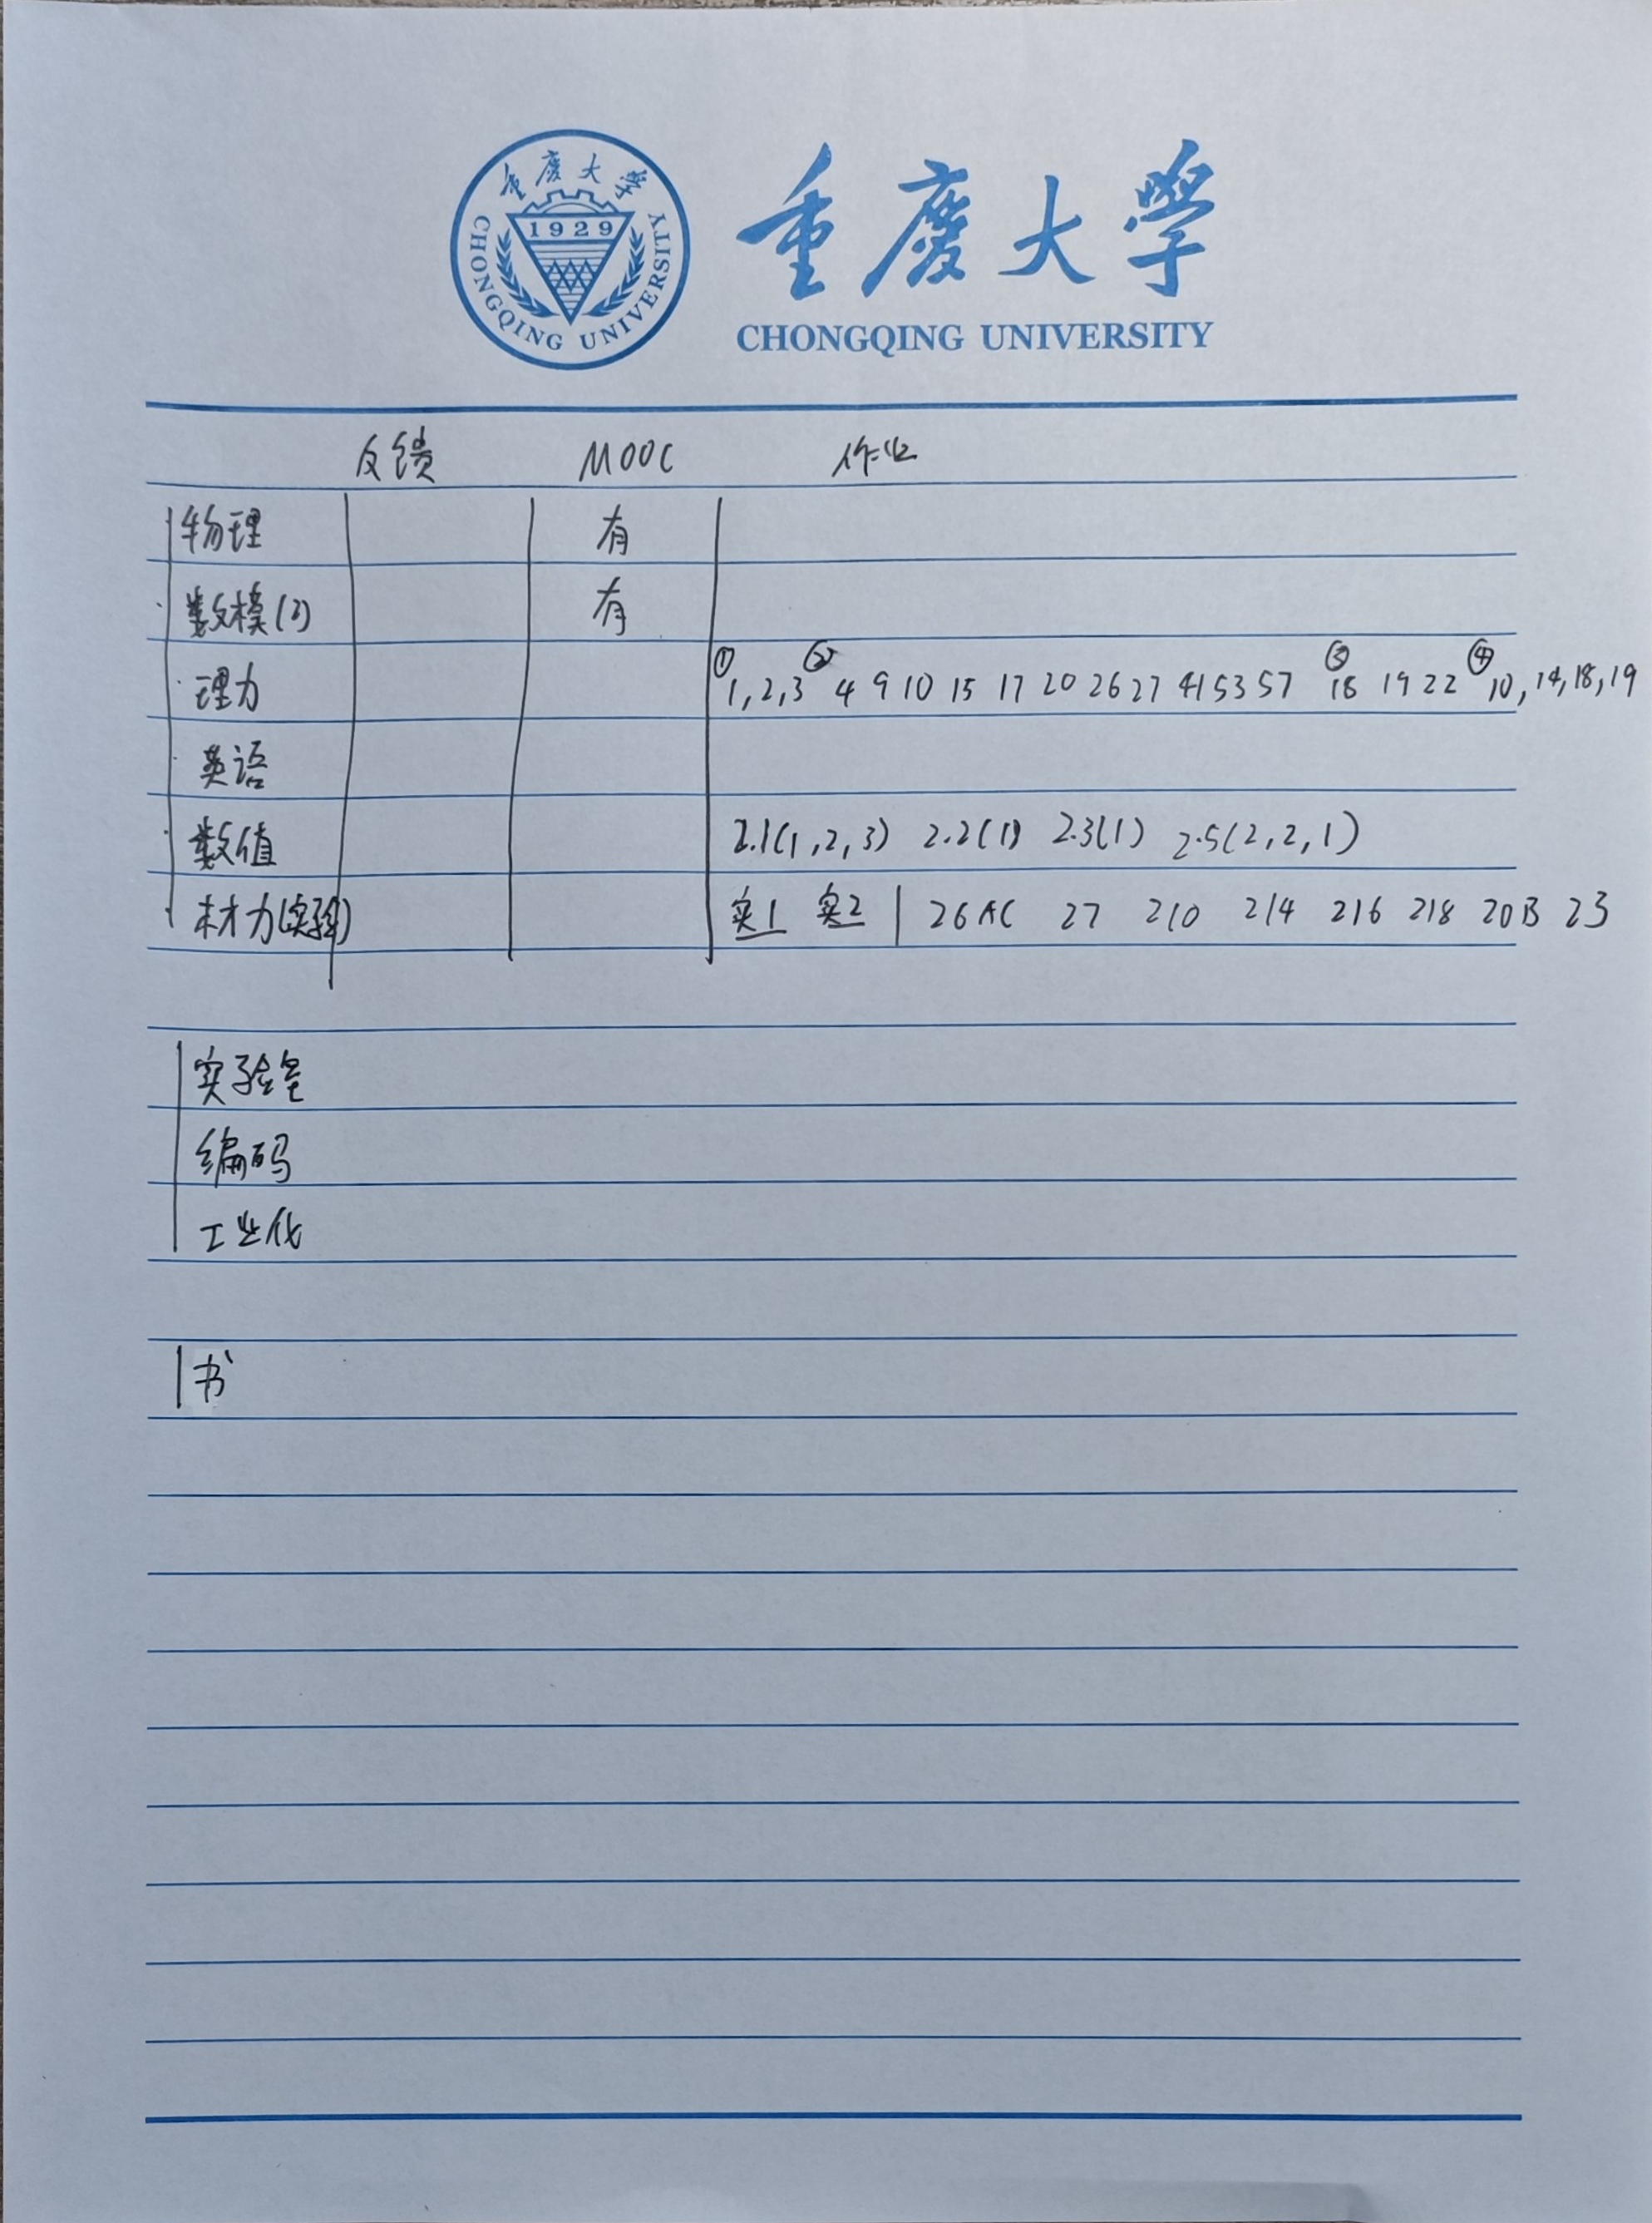 重慶大学
1929
CHONGQING UNIVERSITY
重慶大学
CHONGQING UNIVERSITY
反馈 MOOC 作业
物理 有
数模(3) 有
理力 ①1,2,3 ②4 9 10 15 17 20 26 27 41 53 57 ③18 19 22 ④10,14,18,19
英语
数值 2.1(1,2,3) 2.2(1) 2.3(1) 2.5(2,2,1)
材力(实验) 实1 实2 | 26AC 27 210 214 216 218 20B 23
实验室
编码
工业化
书